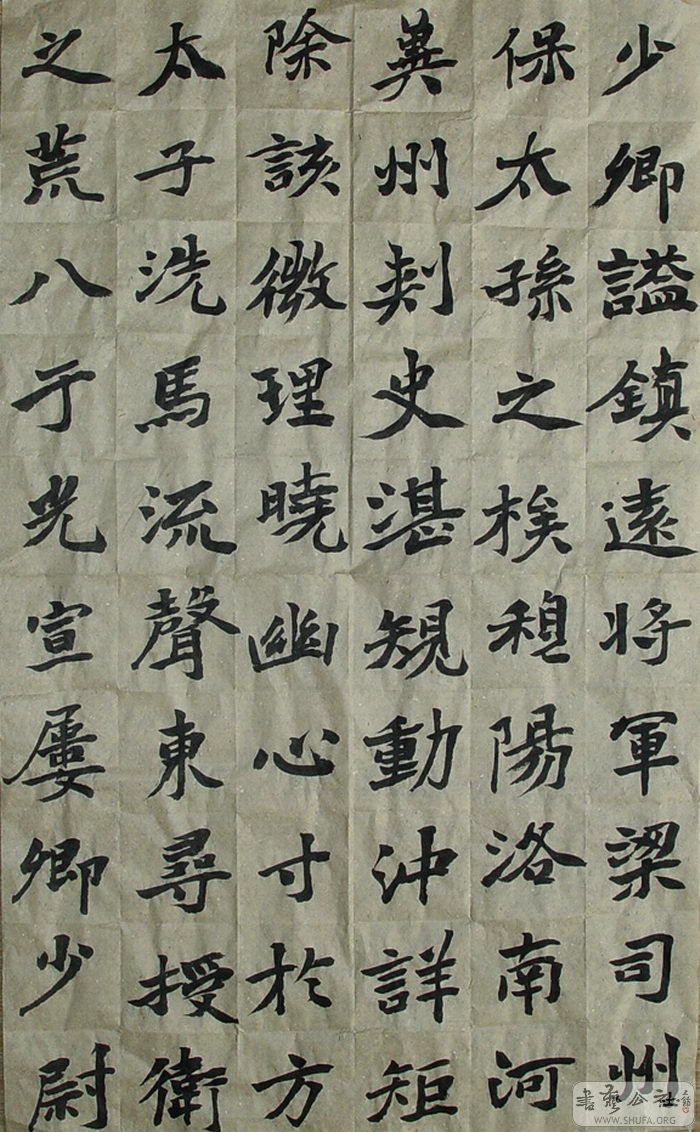 少卿謚鎮遠將軍梁司州
保太孫之族穆陽洛南河
冀州刺史湛規動沖詳矩
除該微理曉幽心寸於方
太子洗馬流聲東尋授衛
之荒八于光宣屢卿少尉
書藝公社
WWW.SHUFA.ORG